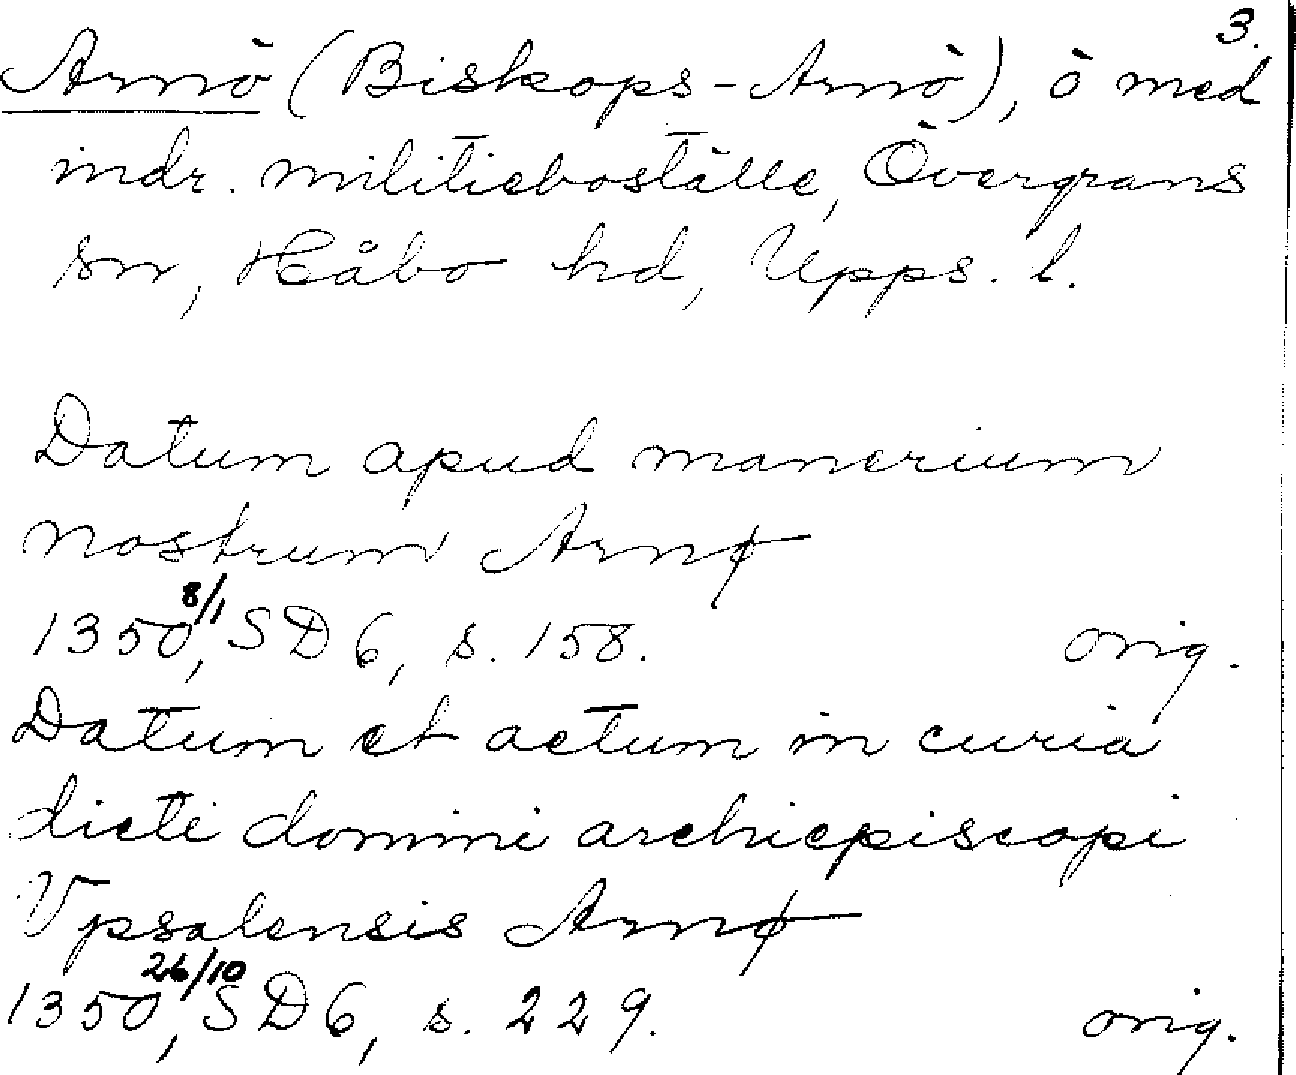 3.
Arnö (Biskops-Arnö), ö med
indr. militieboställe, Övergrans
sn, Håbo hd, Upps. l.
Datum apud manerium
nostrum Arnø
1350 8/1, SD 6, s. 158. orig.
Datum et actum in curia
dicti domini archiepiscopi
Vpsalensis Arnø
1350 26/10, SD 6, s. 229. orig.